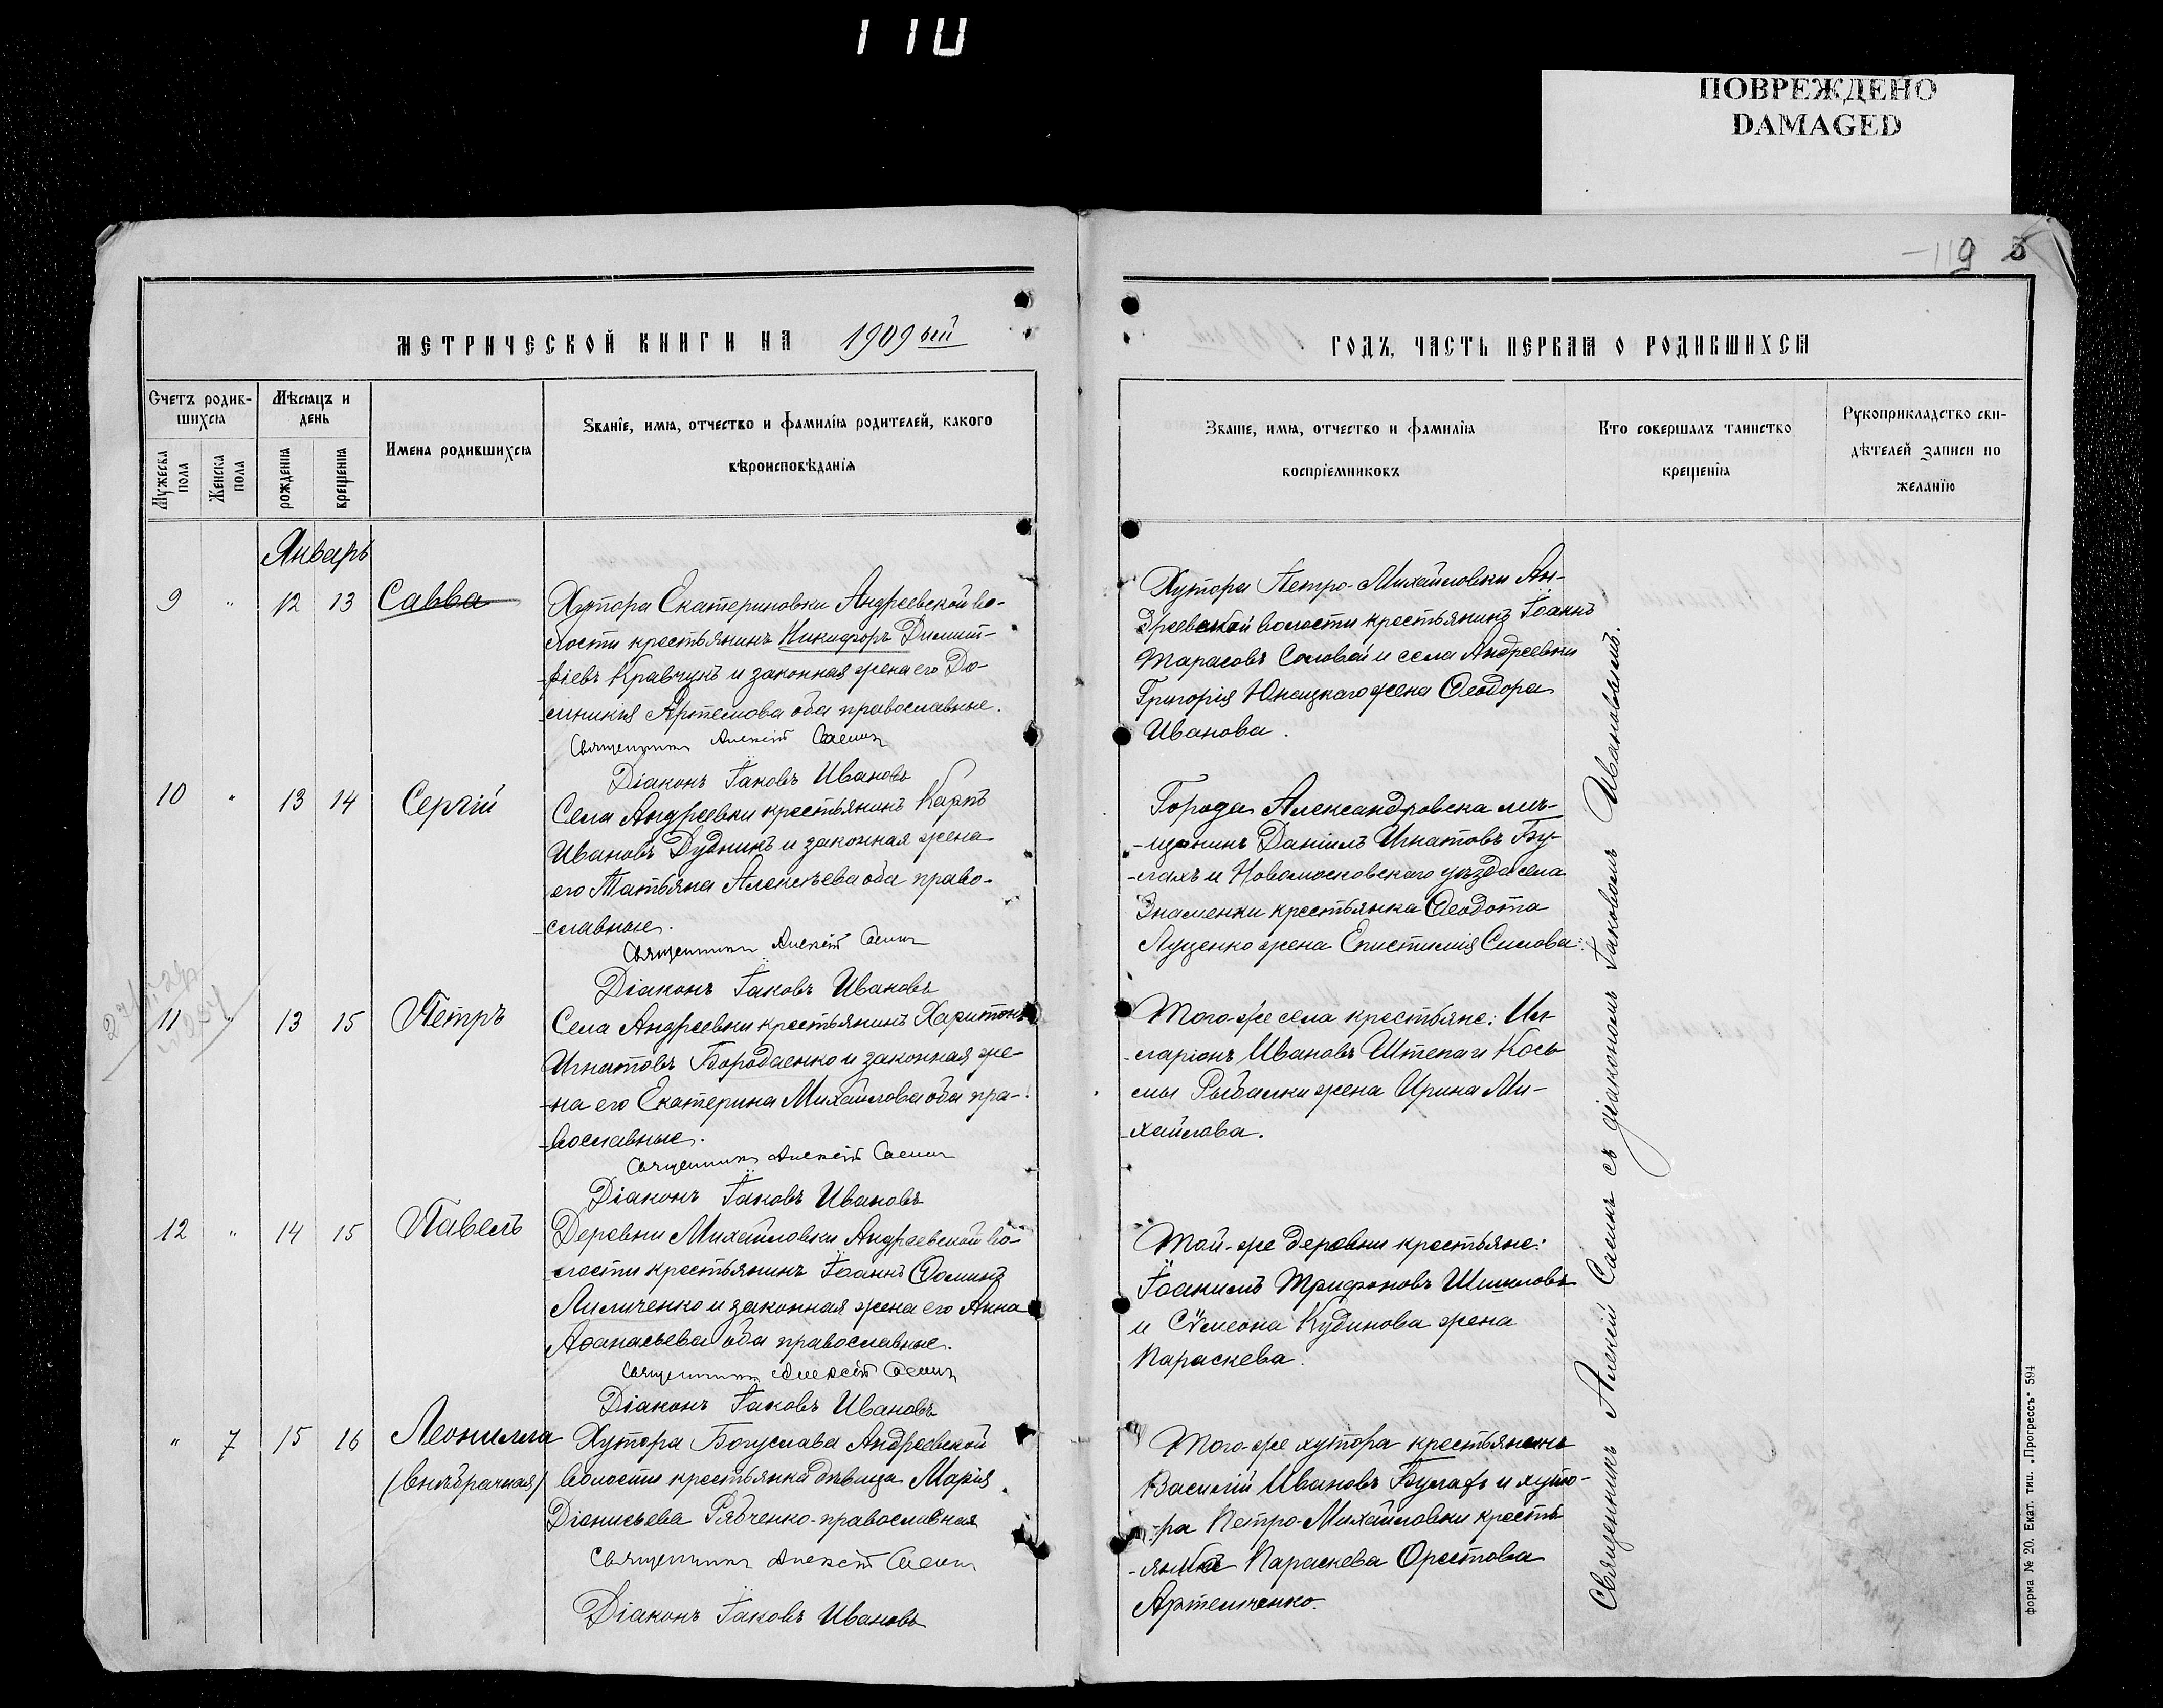 110
ПОВРЕЖДЕНО
DAMAGED
119 5
МЕТРИЧЕСКОЙ КНИГИ НА 1909ый
Счетъ родив-
шихся
Мѣсяцъ и
день
Имена родившихся
Званіе, имя, отчество и фамилія родителей, какого
вѣроисповѣданія
Мужеска
пола
Женска
пола
рожденія
крещенія
Январь
9 " 12 13 Савва
Хутора Екатериновки Андреевской во-
лости крестьянинъ Никифоръ Димит-
ріевъ Кравчукъ и законная жена его До-
мникія Артемова оба православные.
Священникъ Алексій Саенко
Діаконъ Іаковъ Ивановъ
10 " 13 14 Сергій
Села Андреевки крестьянинъ Карпъ
Ивановъ Дудникъ и законная жена
его Татьяна Алексѣева оба право-
славные.
Священникъ Алексій
Діаконъ Іаковъ Ивановъ
11 " 13 15 Петръ
Села Андреевки крестьянинъ Харитонъ
Игнатовъ Бородаенко и законная же-
на его Екатерина Михайлова оба пра-
вославные.
Священникъ Алексій
Діаконъ Іаковъ Ивановъ
12 " 14 15 Павелъ
Деревни Михайловки Андреевской во-
лости крестьянинъ Іоаннъ Ѳоминъ
Лиличенко и законная жена его Анна
Аѳанасьева оба православные.
Священникъ Алексій
Діаконъ Іаковъ Ивановъ
" 7 15 16 Леонилла
(внѣбрачная)
Хутора Богуслава Андреевской
волости крестьянка дѣвица Марія
Діонисьева Рябченко-православная
Священникъ Алексій
Діаконъ Іаковъ Ивановъ
ГОДЪ, ЧАСТЬ ПЕРВАЯ О РОДИВШИХСЯ
Званіе, имя, отчество и фамилія
воспріемниковъ
Кто совершалъ таинство
крещенія
Рукоприкладство сви-
дѣтелей записи по
желанію
Хутора Петро-Михайловки Ан-
дреевской волости крестьянинъ Іоаннъ
Тарасовъ Соловей и села Андреевки
Григорія Юницкаго жена Ѳеодора
Иванова.
Города Александровска мѣ-
щанинъ Даніилъ Игнатовъ Бу-
лахъ и Новомосковскаго уѣзда села
Знаменки крестьянка Ѳеодота
Луценко жена Епистимія Симова.
Того-же села крестьяне: Ил-
ларіонъ Ивановъ Штепа и Кось-
мы Рыбалки жена Ирина Ми-
хайлова.
Той-же деревни крестьяне:
Іоакимъ Трифоновъ Шишловъ
и Сѵмеона Кудинова жена
Параскева.
Того-же хутора крестьянинъ
Василій Ивановъ Булахъ и хуто-
ра Петро-Михайловки кресть-
янка Параскева Орестова
Артемченко.
Священникъ Алексій Саенко съ діакономъ Іаковомъ Ивановымъ.
форма № 20. Екат. тип. „Прогрессъ" 594